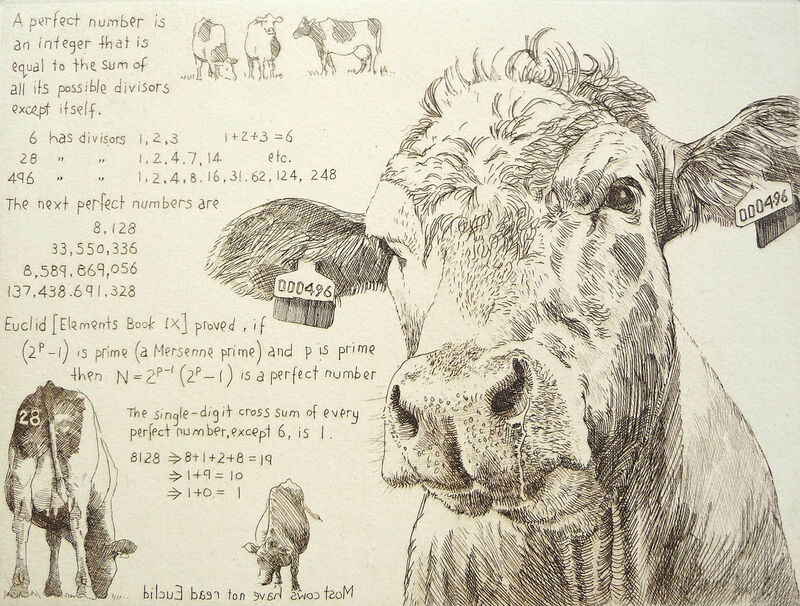 A perfect number is
an integer that is
equal to the sum of
all its possible divisors
except itself.
6 has divisors 1, 2, 3 1+2+3=6
28 " " 1, 2, 4. 7, 14 etc.
496 " " 1, 2, 4, 8, 16, 31. 62, 124, 248
The next perfect numbers are
8,128
33,550,336
8,589,869,056
137,438.691,328
Euclid [Elements Book IX] proved, if
(2ᵖ-1) is prime (a Mersenne prime) and p is prime
then N = 2ᵖ⁻¹ (2ᵖ-1) is a perfect number
The single-digit cross sum of every
perfect number, except 6, is 1.
8128 ⇒ 8+1+2+8 = 19
⇒ 1+9 = 10
⇒ 1+0 = 1
28
Most cows have not read Euclid
000496
000496